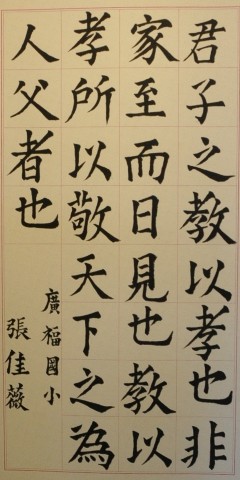 君子之教以孝也非
家至而日見也教以
孝所以敬天下之為
人父者也
廣福國小
張佳薇